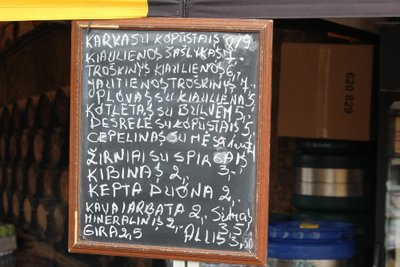 KARKA SU KOPŪSTAIS 8/9
KIAULIENOS ŠAŠLYKAS 7,-
TROŠKINYS KIAULIENOS 6,-
JAUTIENOS TROŠKINYS 7,-
PLOVAS SU KIAULIENA 5,-
KOTLETAS SU BULVĖM 5,-
DEŠRELĖ SU KOPŪSTAIS 5,-
CEPELINAS SU MĖSA
ŽIRNIAI SU SPIRGAIS 4
KIBINAS 2,- 3,-
KEPTA DUONA 2,-
KAVA ARBATA 2,-
MINERALINIS 2,- 3,5
GIRA 2,5 ALUS 3,50
620 629